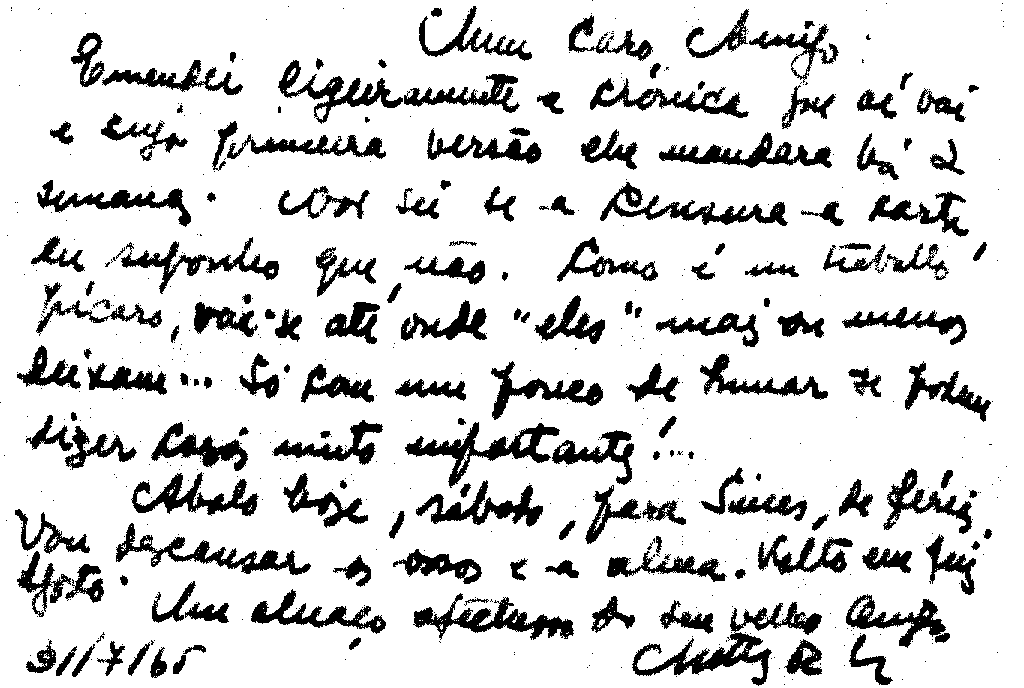 Meu caro Amigo:
Emendei ligeiramente a crónica que aí vai
e cuja primeira versão lhe mandara há 2
semanas. Não sei se a Censura a corta,
eu suponho que não. Como é um trabalho
pícaro, vai-se até onde "eles" mais ou menos
deixam... Só com um pouco de humor se podem
dizer coisas muito importantes!...
Abalo hoje, sábado, para Sines, de férias.
Vou descansar os ossos e a alma. Volto em fins
Agosto. Um abraço afectuoso do seu velho Amigo
31/7/65